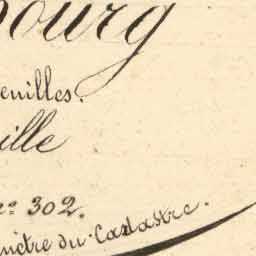 bourg
enilles.
ille
no 302.
mètre du Cadastre.